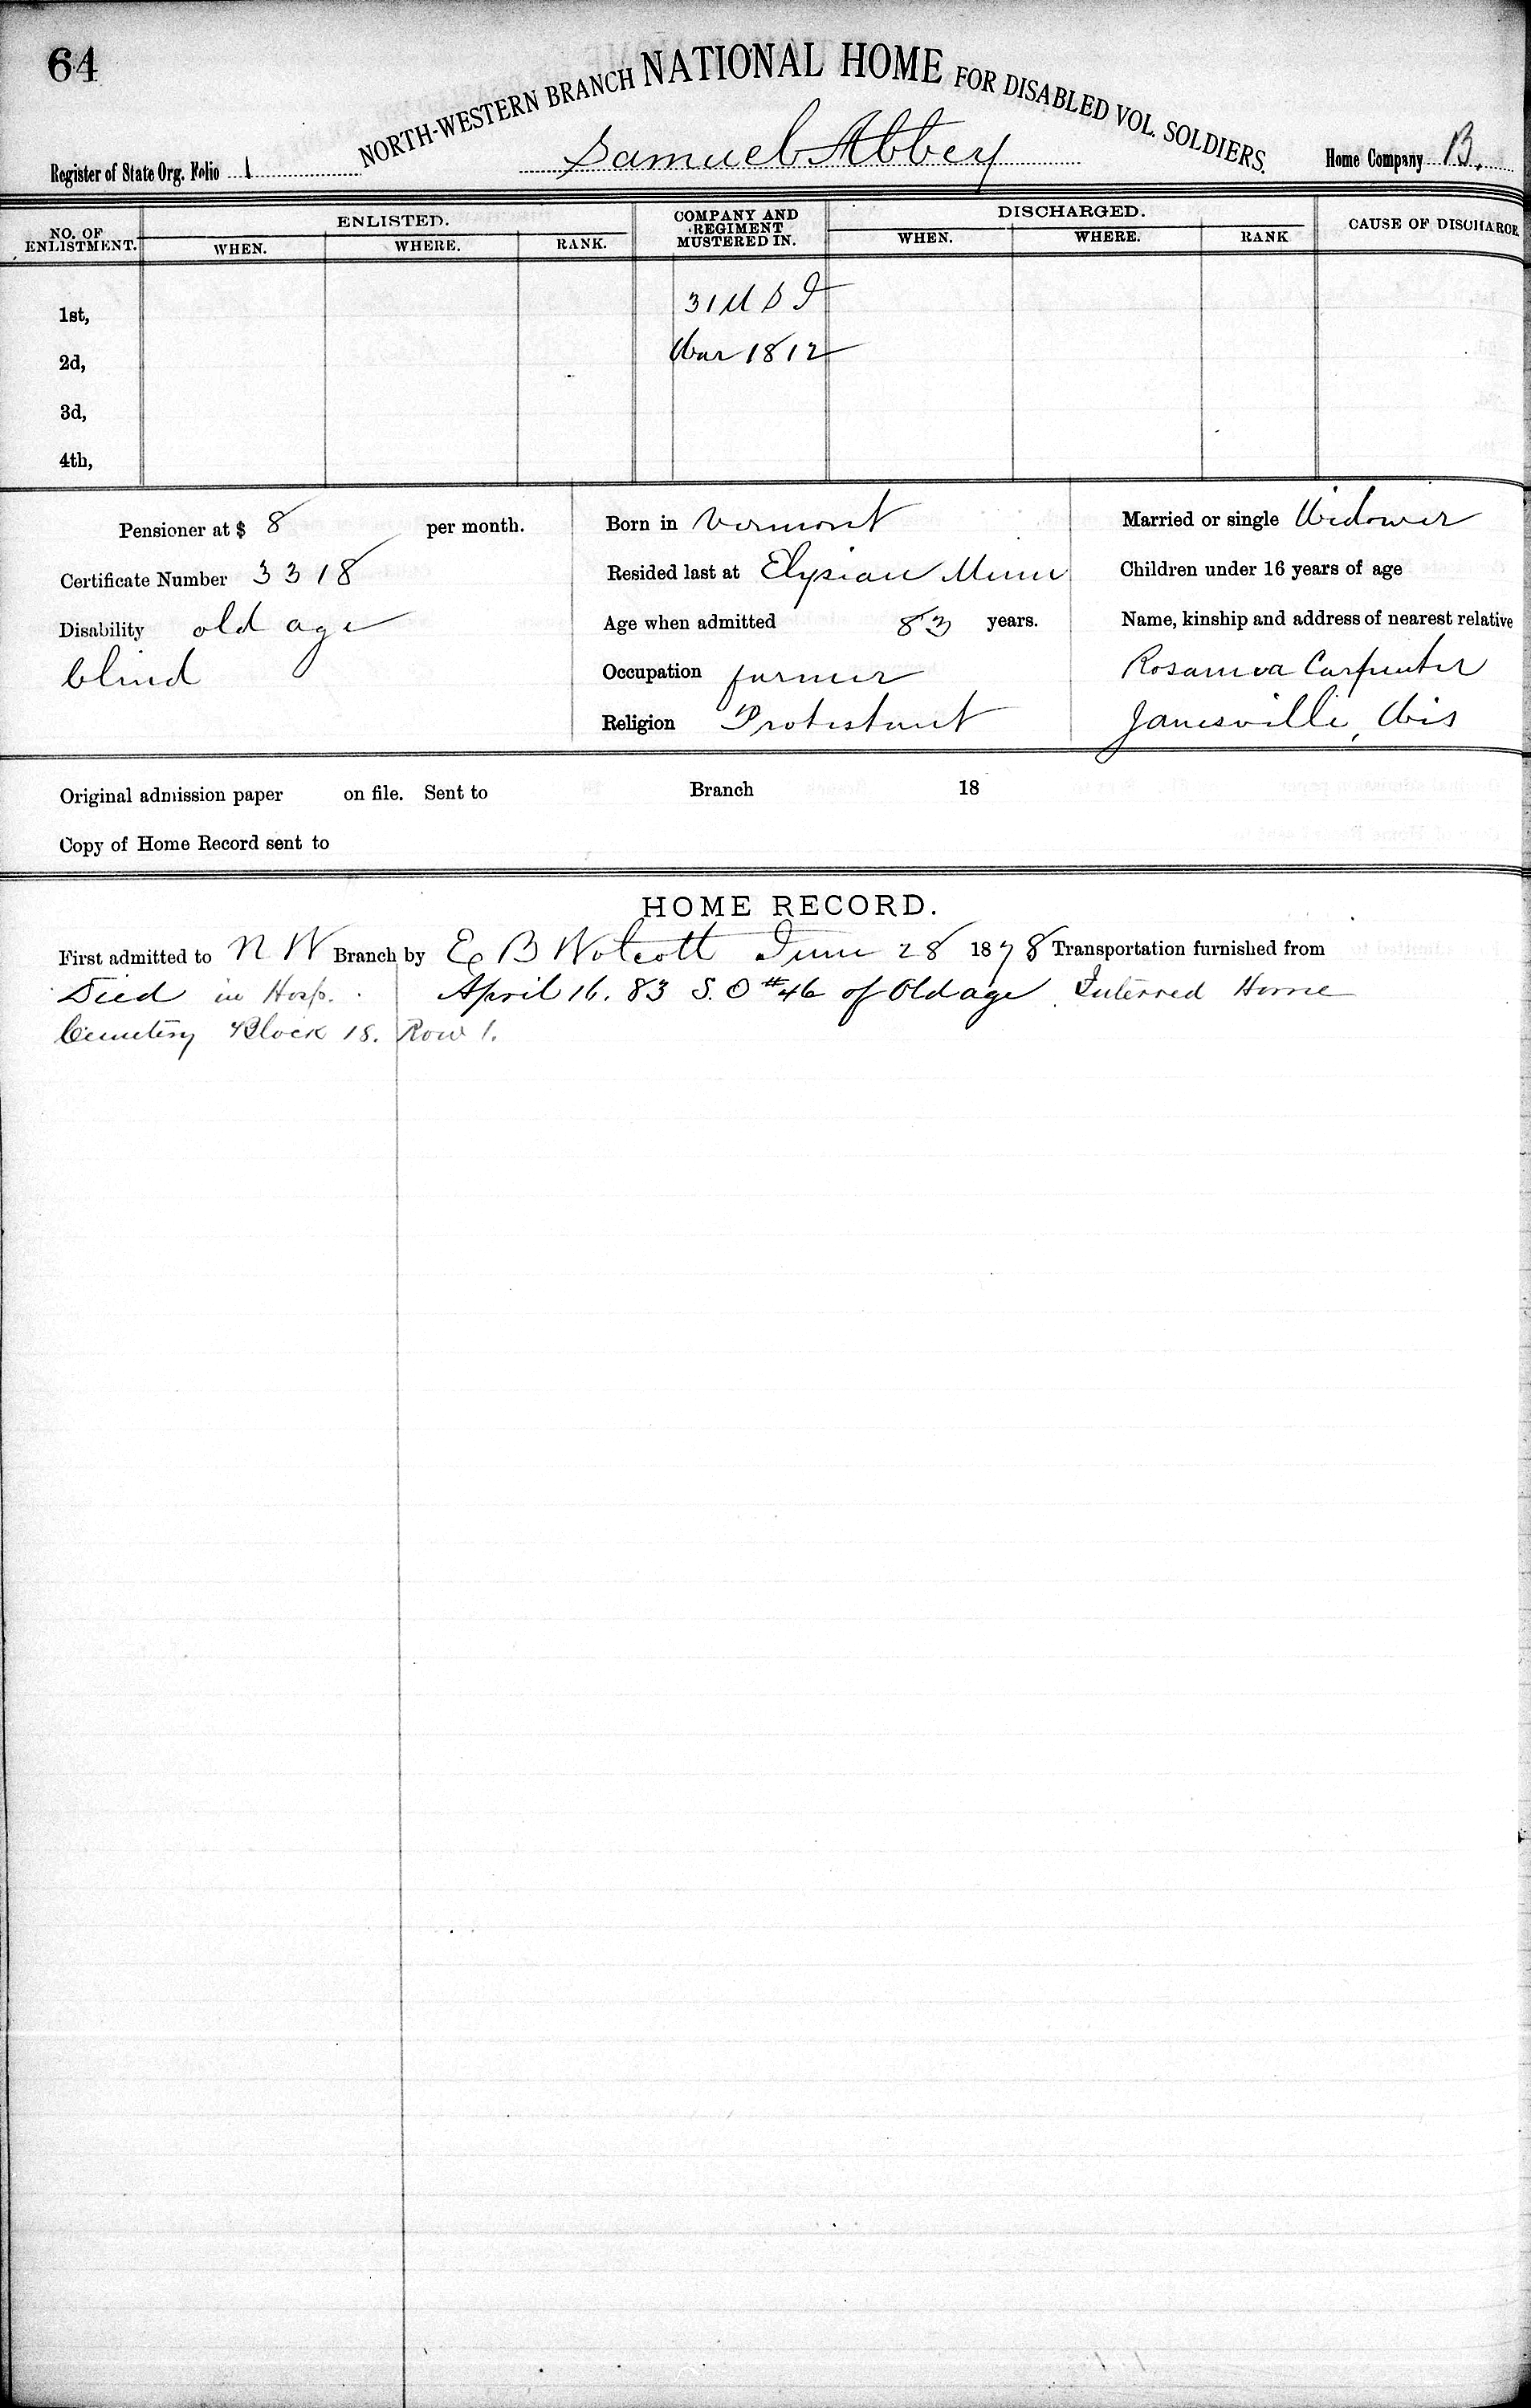 64
NORTH-WESTERN BRANCH NATIONAL HOME FOR DISABLED VOL. SOLDIERS.
Register of State Org. Folio 1 Samuel Abbey Home Company B.
NO. OF ENLISTMENT. ENLISTED. COMPANY AND REGIMENT MUSTERED IN. DISCHARGED. CAUSE OF DISCHARGE
WHEN. WHERE. RANK. WHEN. WHERE. RANK
1st, 31 U S I
2d, War 1812
3d,
4th,
Pensioner at $ 8 per month. Born in Vermont Married or single Widower
Certificate Number 3318 Resided last at Elysian Minn Children under 16 years of age
Disability old age Age when admitted 83 years. Name, kinship and address of nearest relative
blind Occupation farmer Carpenter
Religion Protestant Janesville, Wis
Original admission paper on file. Sent to Branch 18
Copy of Home Record sent to
HOME RECORD.
First admitted to N W Branch by E B Wolcott June 28 1878 Transportation furnished from
Died in Hosp. April 16. 83 S. O #46 of Old age Interred Home
Cemetery Block 18. Row 1.